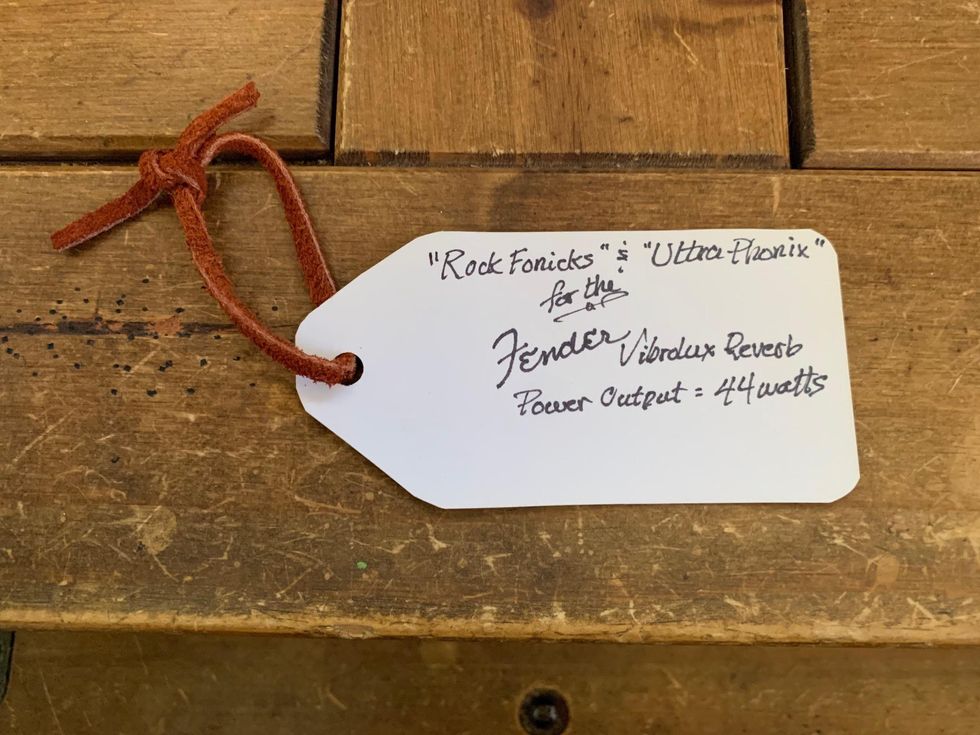 "Rock Fonicks" & "Ultra-Phonix"
for the
Fender Vibrolux Reverb
Power Output = 44 watts